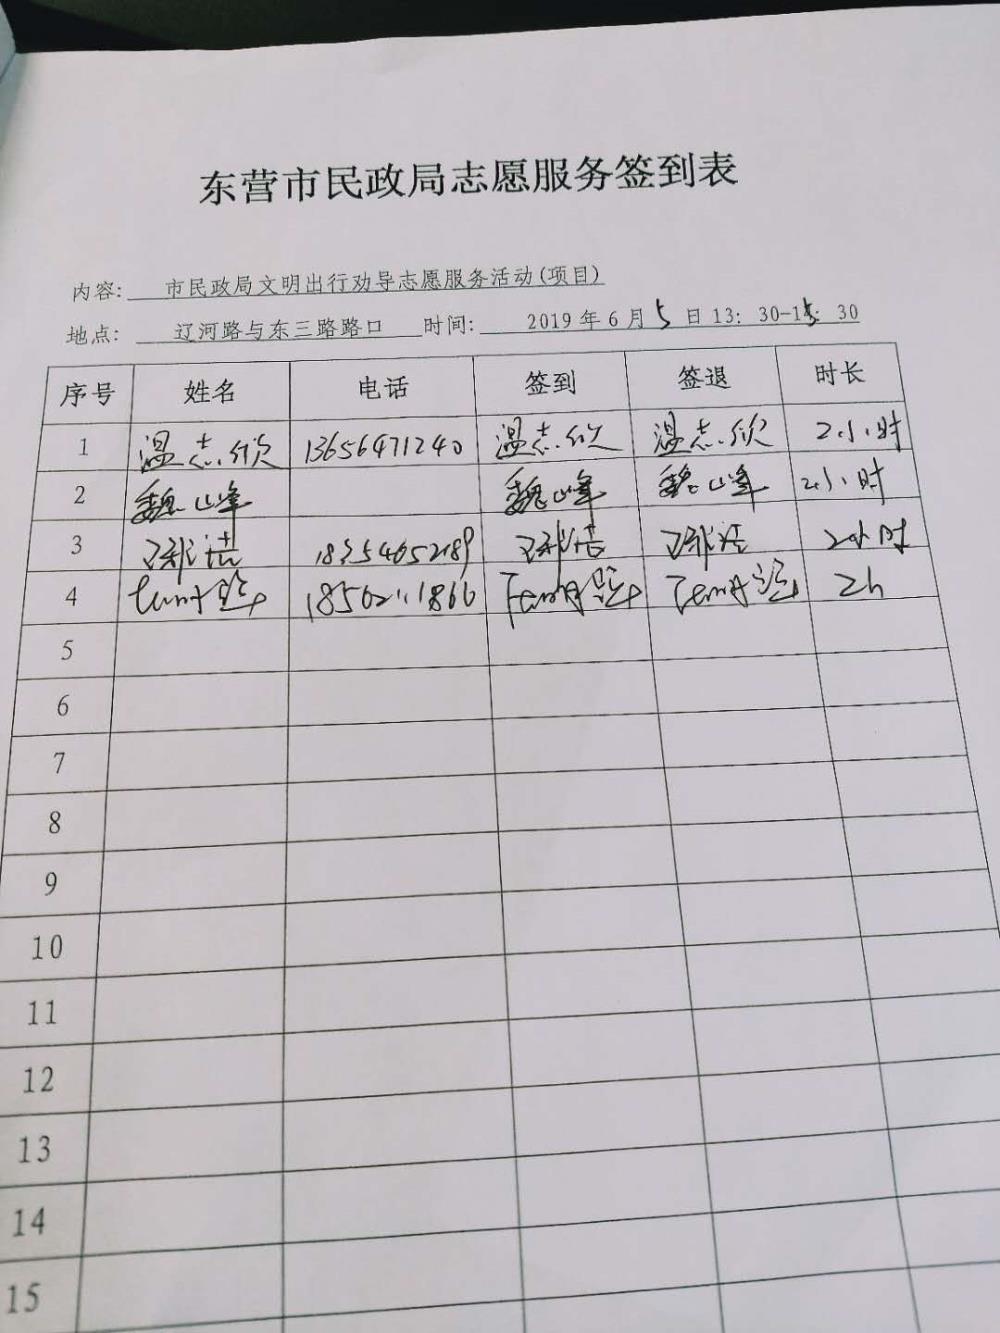 东营市民政局志愿服务签到表
内容: 市民政局文明出行劝导志愿服务活动(项目)
地点: 辽河路与东三路路口 时间: 2019年6月5日13:30-15:30
序号 姓名 电话 签到 签退 时长
1 温志欣 13656471240 温志欣 温志欣 2小时
2 魏山峰 魏山峰 魏山峰 2小时
3 18354652189 2小时
4 2h
5
6
7
8
9
10
11
12
13
14
15